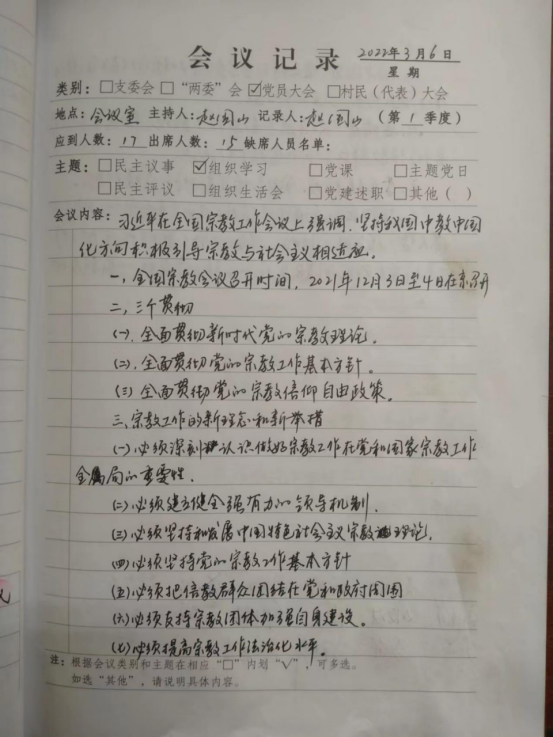 会议记录 2022年3月6日
星期
类别：□支委会 □“两委”会 ☑党员大会 □村民（代表）大会
地点：会议室 主持人：赵国山 记录人：赵国山 （第1季度）
应到人数：17 出席人数：15 缺席人员名单：
主题：□民主议事 ☑组织学习 □党课 □主题党日
□民主评议 □组织生活会 □党建述职 □其他（ ）
会议内容：习近平在全国宗教工作会议上强调，坚持我国中教中国
化方向积极引导宗教与社会主义相适应。
一，全国宗教会议召开时间，2021年12月3日至4日在京召开
二，三个贯彻
(一)，全面贯彻新时代党的宗教理论。
(二)，全面贯彻党的宗教工作基本方针。
(三)全面贯彻党的宗教信仰自由政策。
三、宗教工作的新理念和新举措
(一)必须深刻认识做好宗教工作在党和国家宗教工作
全局的重要性．
(二)必须建立健全强有力的领导机制．
(三)必须坚持和发展中国特色社会主义宗教理论，
(四)必须坚持党的宗教工作基本方针
(五)必须把信教群众团结在党和政府周围
(六)必须支持宗教团体加强自身建设。
(七)必须提高宗教工作法治化水平。
注：根据会议类别和主题在相应“□”内划“√”，可多选。
如选“其他”，请说明具体内容。